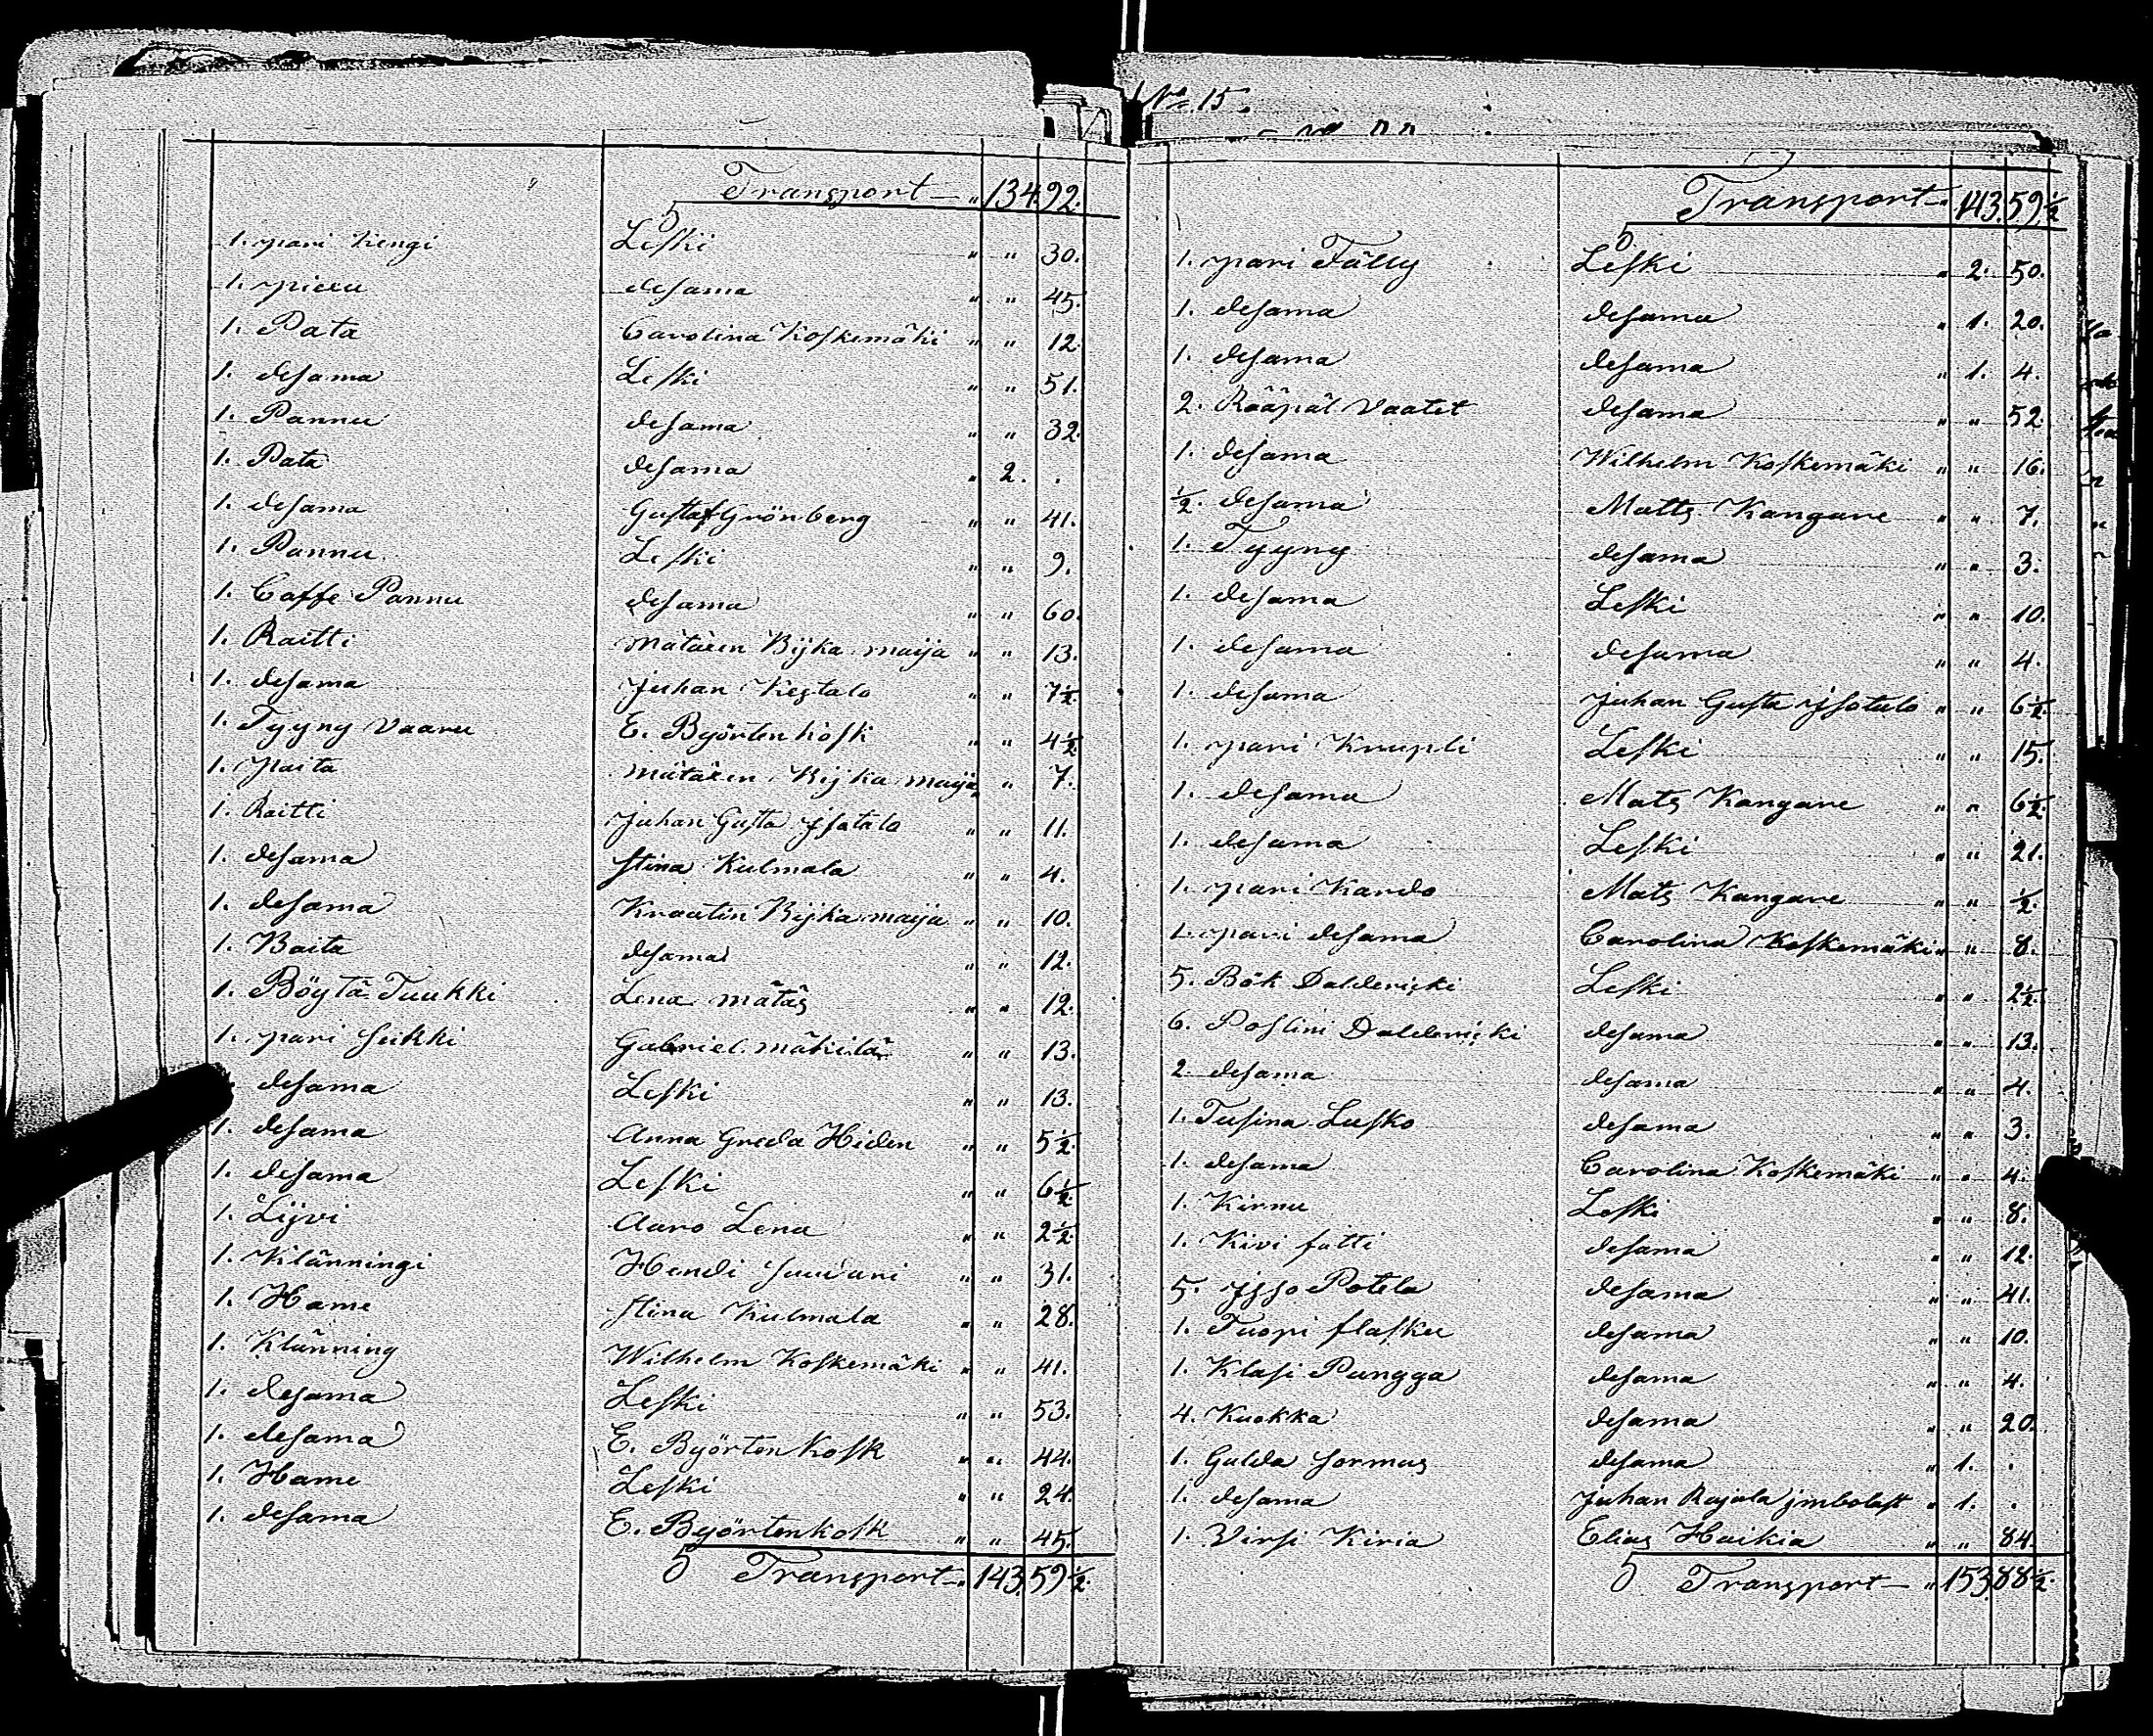 Transport — " 134.92.
1. pari Kengi Leski " " 30.
1. piccu desama " " 45.
1. Pata Carolina Koskemäki " " 12.
1. desama Leski " " 51.
1. Pannu desama " " 32.
1. Pata desama " 2. .
1. desama Gustaf Grönberg " " 41.
1. Pannu Leski " " 9.
1. Caffe Pannu desama " " 60.
1. Raitti mätäsen Rijka maija " " 13.
1. desama Juhan Kestalo " " 7½.
1. Tyyny Vaaru E. Byörtenkosk " " 4½.
1. paita mätäsen Rijka maija " " 7.
1. Raitti Juhan Gusta Jsotalo " " 11.
1. desama Stina Kulmala " " 4.
1. desama Knaatin Rijka maija " " 10.
1. Baita desama " " 12.
1. Böytä Tuukki Lena mätäs " " 12.
1. pari Seikki Gabriel mäkilä " " 13.
desama Leski " " 13.
1. desama Anna Greda Hiden " " 5½.
1. desama Leski " " 6½.
1. Lijvi Aaro Lena " " 2½.
1. Klänningi Hendi " " 31.
1. Hame Stina Kulmala " " 28.
1. Klänning Wilhelm Koskemäki " " 41.
1. desama Leski " " 53.
1. desama E. Byörtenkosk " " 44.
1. Hame Leski " " 24.
1. desama E. Byörtenkosk " " 45.
Transport — " 143.59½.
No. 15.
Transport — " 143.59½
1. pari Fälly Leski " 2. 50.
1. desama desama " 1. 20.
1. desama desama " 1. 4.
2. Rääpät Vaatet desama " " 52.
1. desama Wilhelm Koskemäki " " 16.
½. desama Matts Kangare " " 7.
1. Tyyny desama " " 3.
1. desama Leski " " 10.
1. desama desama " " 4.
1. desama Juhan Gusta Jsotalo " " 6½.
1. pari Knupli Leski " " 15.
1. desama Mats Kangare " " 6½.
1. desama Leski " " 21.
1. pari Kardo Mats Kangare " " ½.
1. pari desama Carolina Koskemäki " " 8.
5. Bök Daldericki Leski " " 2½.
6. Poslini Daldericki desama " " 13.
2. desama desama " " 4.
1. Tusina Lusko desama " " 3.
1. desama Carolina Koskemäki " " 4.
1. Kirnu Leski " " 8.
1. Kivi fatti desama " " 12.
5. Jsso Potela desama " " 41.
1. Tuopi flasku desama " " 10.
1. Klasi Pungga desama " " 4.
4. Kuokka desama " " 20.
1. Gulda Sormus desama " 1. .
1. desama Juhan Rajala jnbolast " 1. .
1. Virsi Kiria Elias Haikia " " 84.
Transport — " 153.88½.